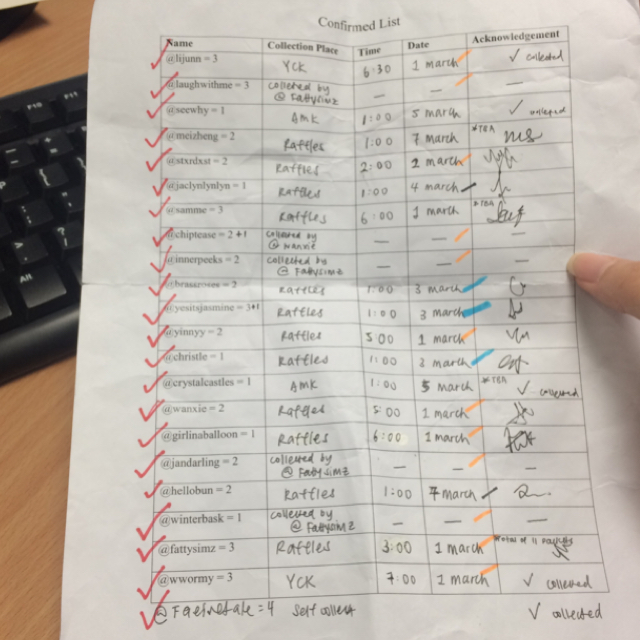 Confirmed List
Name Collection Place Time Date Acknowledgement
@lijunn = 3 YCK 6:30 1 march ✓ collected
@laughwithme = 3 collected by @ Fattysimz — — —
@seewhy = 1 AMK 1:00 5 march ✓ collected
@meizheng = 2 Raffles 1:00 7 march
@stxrdxst = 2 Raffles 2:00 2 march
@jaclynlynlyn = 1 Raffles 1:00 4 march
@samme = 3 Raffles 6:00 1 march
@chiptease = 2 +1 collected by @ wanxie — — —
@innerpeeks = 2 collected by @ Fattysimz — — —
Raffles 1:00 3 march
@yesitsjasmine = 3+1 Raffles 1:00 3 march
@yinnyy = 2 Raffles 5:00 1 march
@christle = 1 Raffles 1:00 3 march
@crystalcastles = 1 AMK 1:00 5 march ✓ collected
@wanxie = 2 Raffles 5:00 1 march
@girlinaballoon = 1 Raffles 6:00 1 march
@jandarling = 2 collected by @ Fattysimz — — —
@hellobun = 2 Raffles 1:00 7 march
@winterbask = 1 collected by @ Fattysimz — — —
@fattysimz = 3 Raffles 3:00 1 march total of 11
@wwormy = 3 YCK 7:00 1 march ✓ collected
= 4 self collect ✓ collected